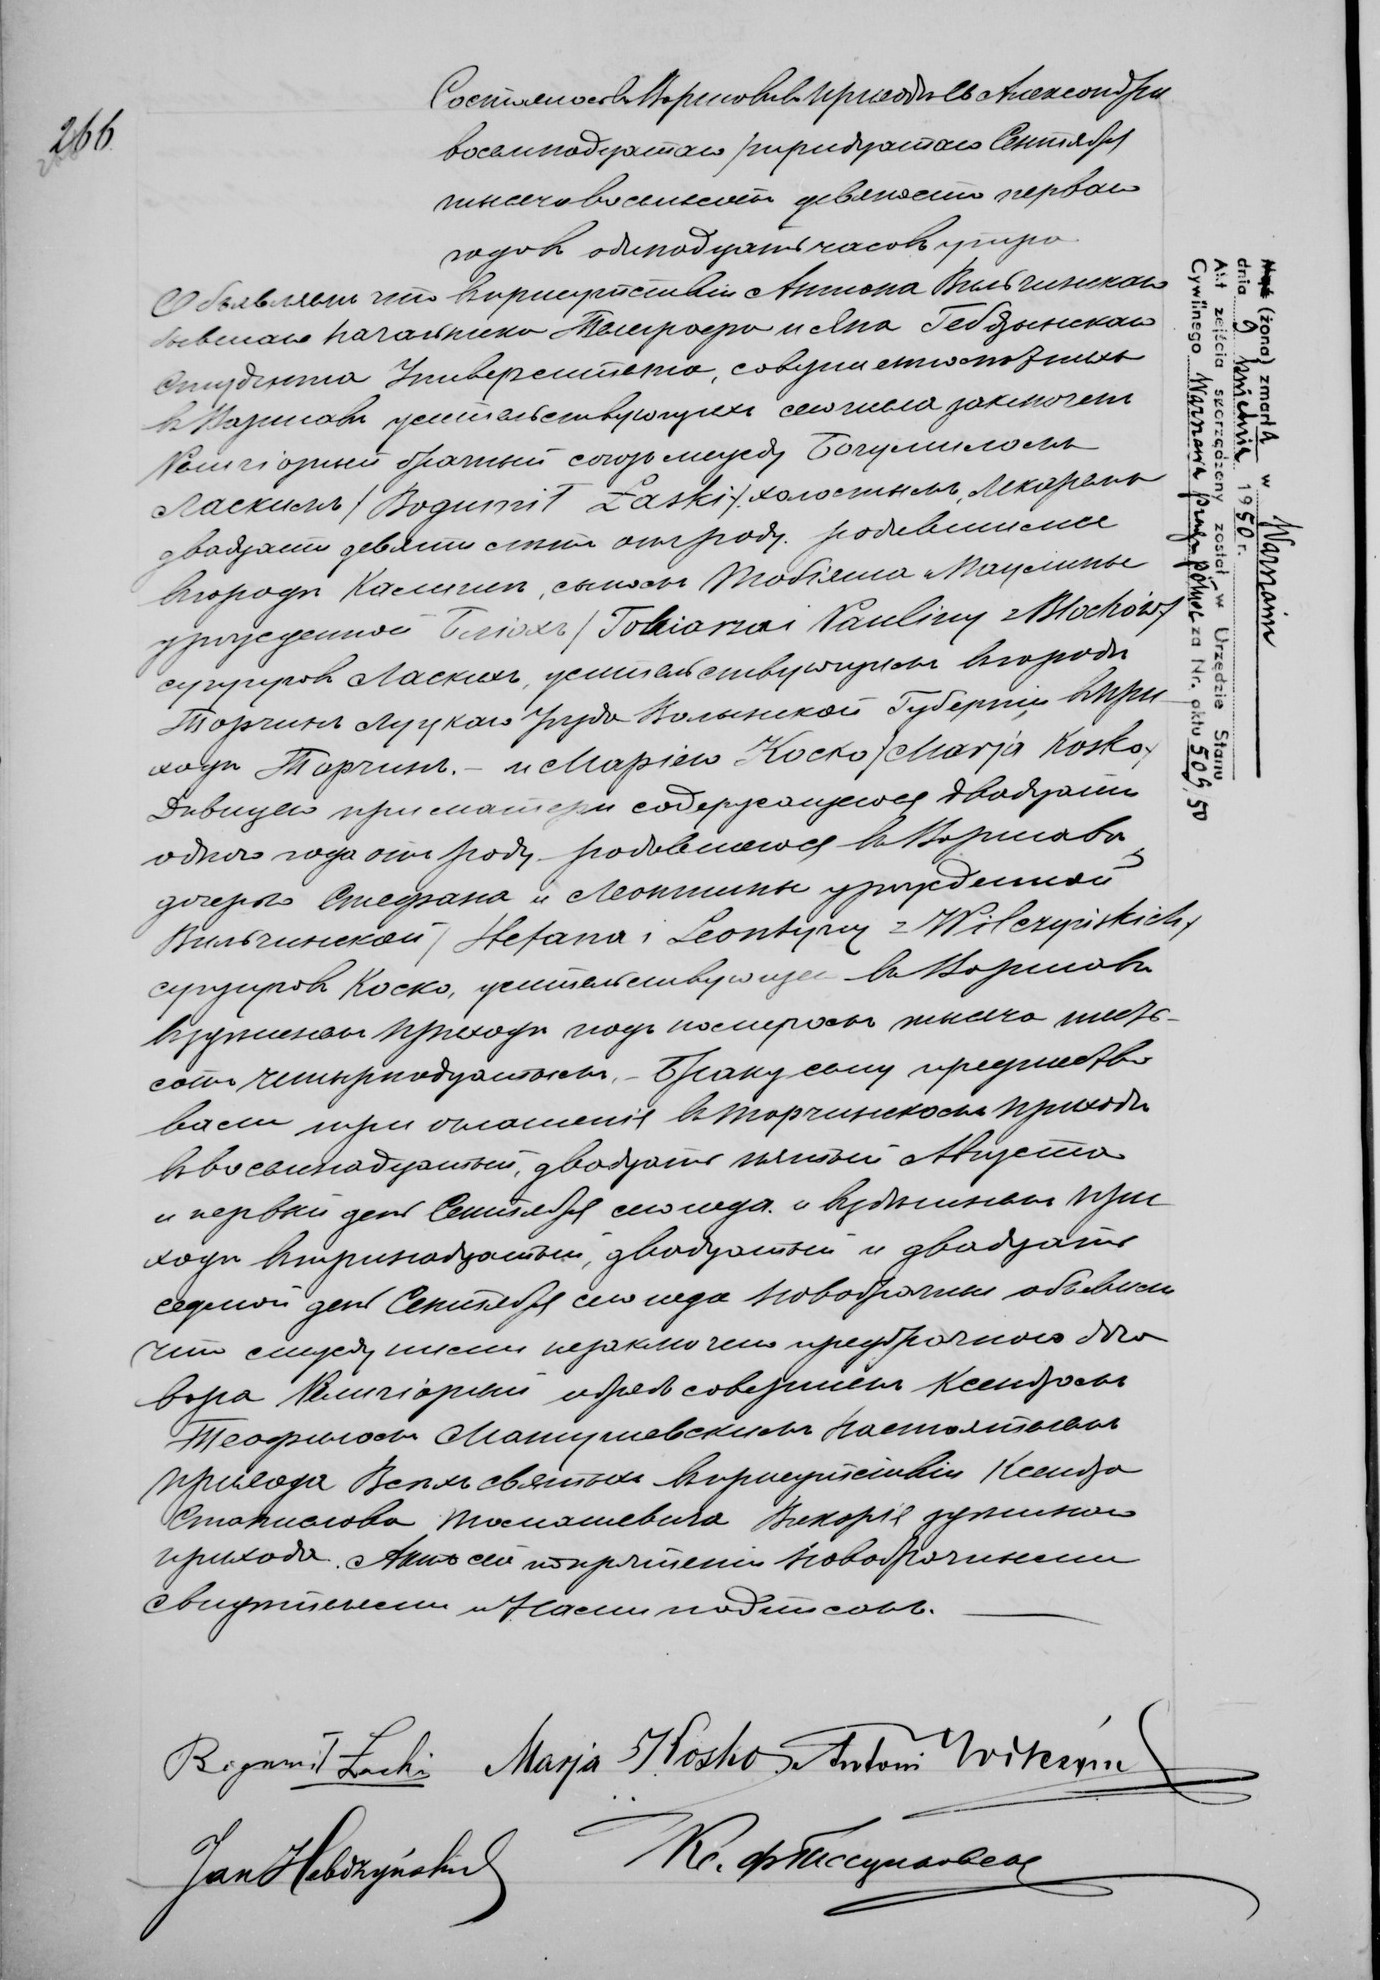 266
Состоялось в Варшаве в приходе Св Александра
восемнадцатаго /тридцатаго Сентября
тысяча восемьсотъ девяносто перваго
года в одинадцать часовъ утра
Объявляемъ что в присутствіи Антона Вильчинскаго
бывшаго начальника Телеграфа и Яна Гебдзынскаго
Студента Университета, совершеннолѣтнихъ
в Варшаве жительствующихъ сего числа заключенъ
Религіозный брачный союзъ между Богумиломъ
Ласкимъ / Bogumił Łaski /, холостымъ, Лекаремъ
двадцати девяти летъ отъ роду, родившимся
в городе Калишѣ, сыномъ Тобіяша и Паулины
урожденной Бліохъ / Tobiasza i Pauliny z Blochów /
супруговъ Ласкихъ, жительствующимъ в городе
Торчинъ Луцкаго Уезда Волынской Губерніи в при-
ходе Торчинъ. – и Маріею Коско / Marja Kosko /
Девицею при матери содержащеюся двадцати
одного года отъ роду родившеюся в Варшаве
дочерью Стефана и Леонтины урожденной
Вильчинской / Stefana i Leontyny z Wilczyńskich /
супруговъ Коско, жительствующей в Варшаве
в здешнемъ приходе подъ номеромъ тысяча шесть-
сотъ четырнадцатымъ. – Браку сему предшество
вали три оглашенія в Торчинскомъ приходе
в восемнадцатый, двадцать пятый Августа
и первый день Сентября сего года и в здешнемъ при
ходе в тринадцатый, двадцатый и двадцать
седмой день Сентября сего года Новобрачные объявили
что между ними незаключено предбрачного дого
вора Религіозный обрядъ совершенъ Ксендзомъ
Теофиломъ Матушевскимъ Настоятелемъ
прихода Всехъ святыхъ в присутствіи Ксендза
Станислава Томашевича Викарія здешняго
прихода. Актъ сей по прочтеніи Новобрачными
свидетелями и Нами подписанъ.
Bogumił Łaski Marja Kosko Antoni Wilczyński
Jan Hebdzyński
Кс.
Mąż (żona) zmarła w Warszawie
dnia 9 kwietnia 1950 r.
Akt zejścia sporządzony został w Urzędzie Stanu
Cywilnego Warszawa praga północ za Nr. aktu 509/50